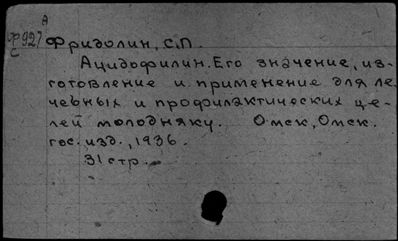 А
Ф927
С
Фридолин, С.П.
Ацидофилин. Его значение, из-
готовление и применение для ле-
чебных и профилактических це-
лей молодняку. Омск, Омск.
гос. изд., 1936.
31 стр.